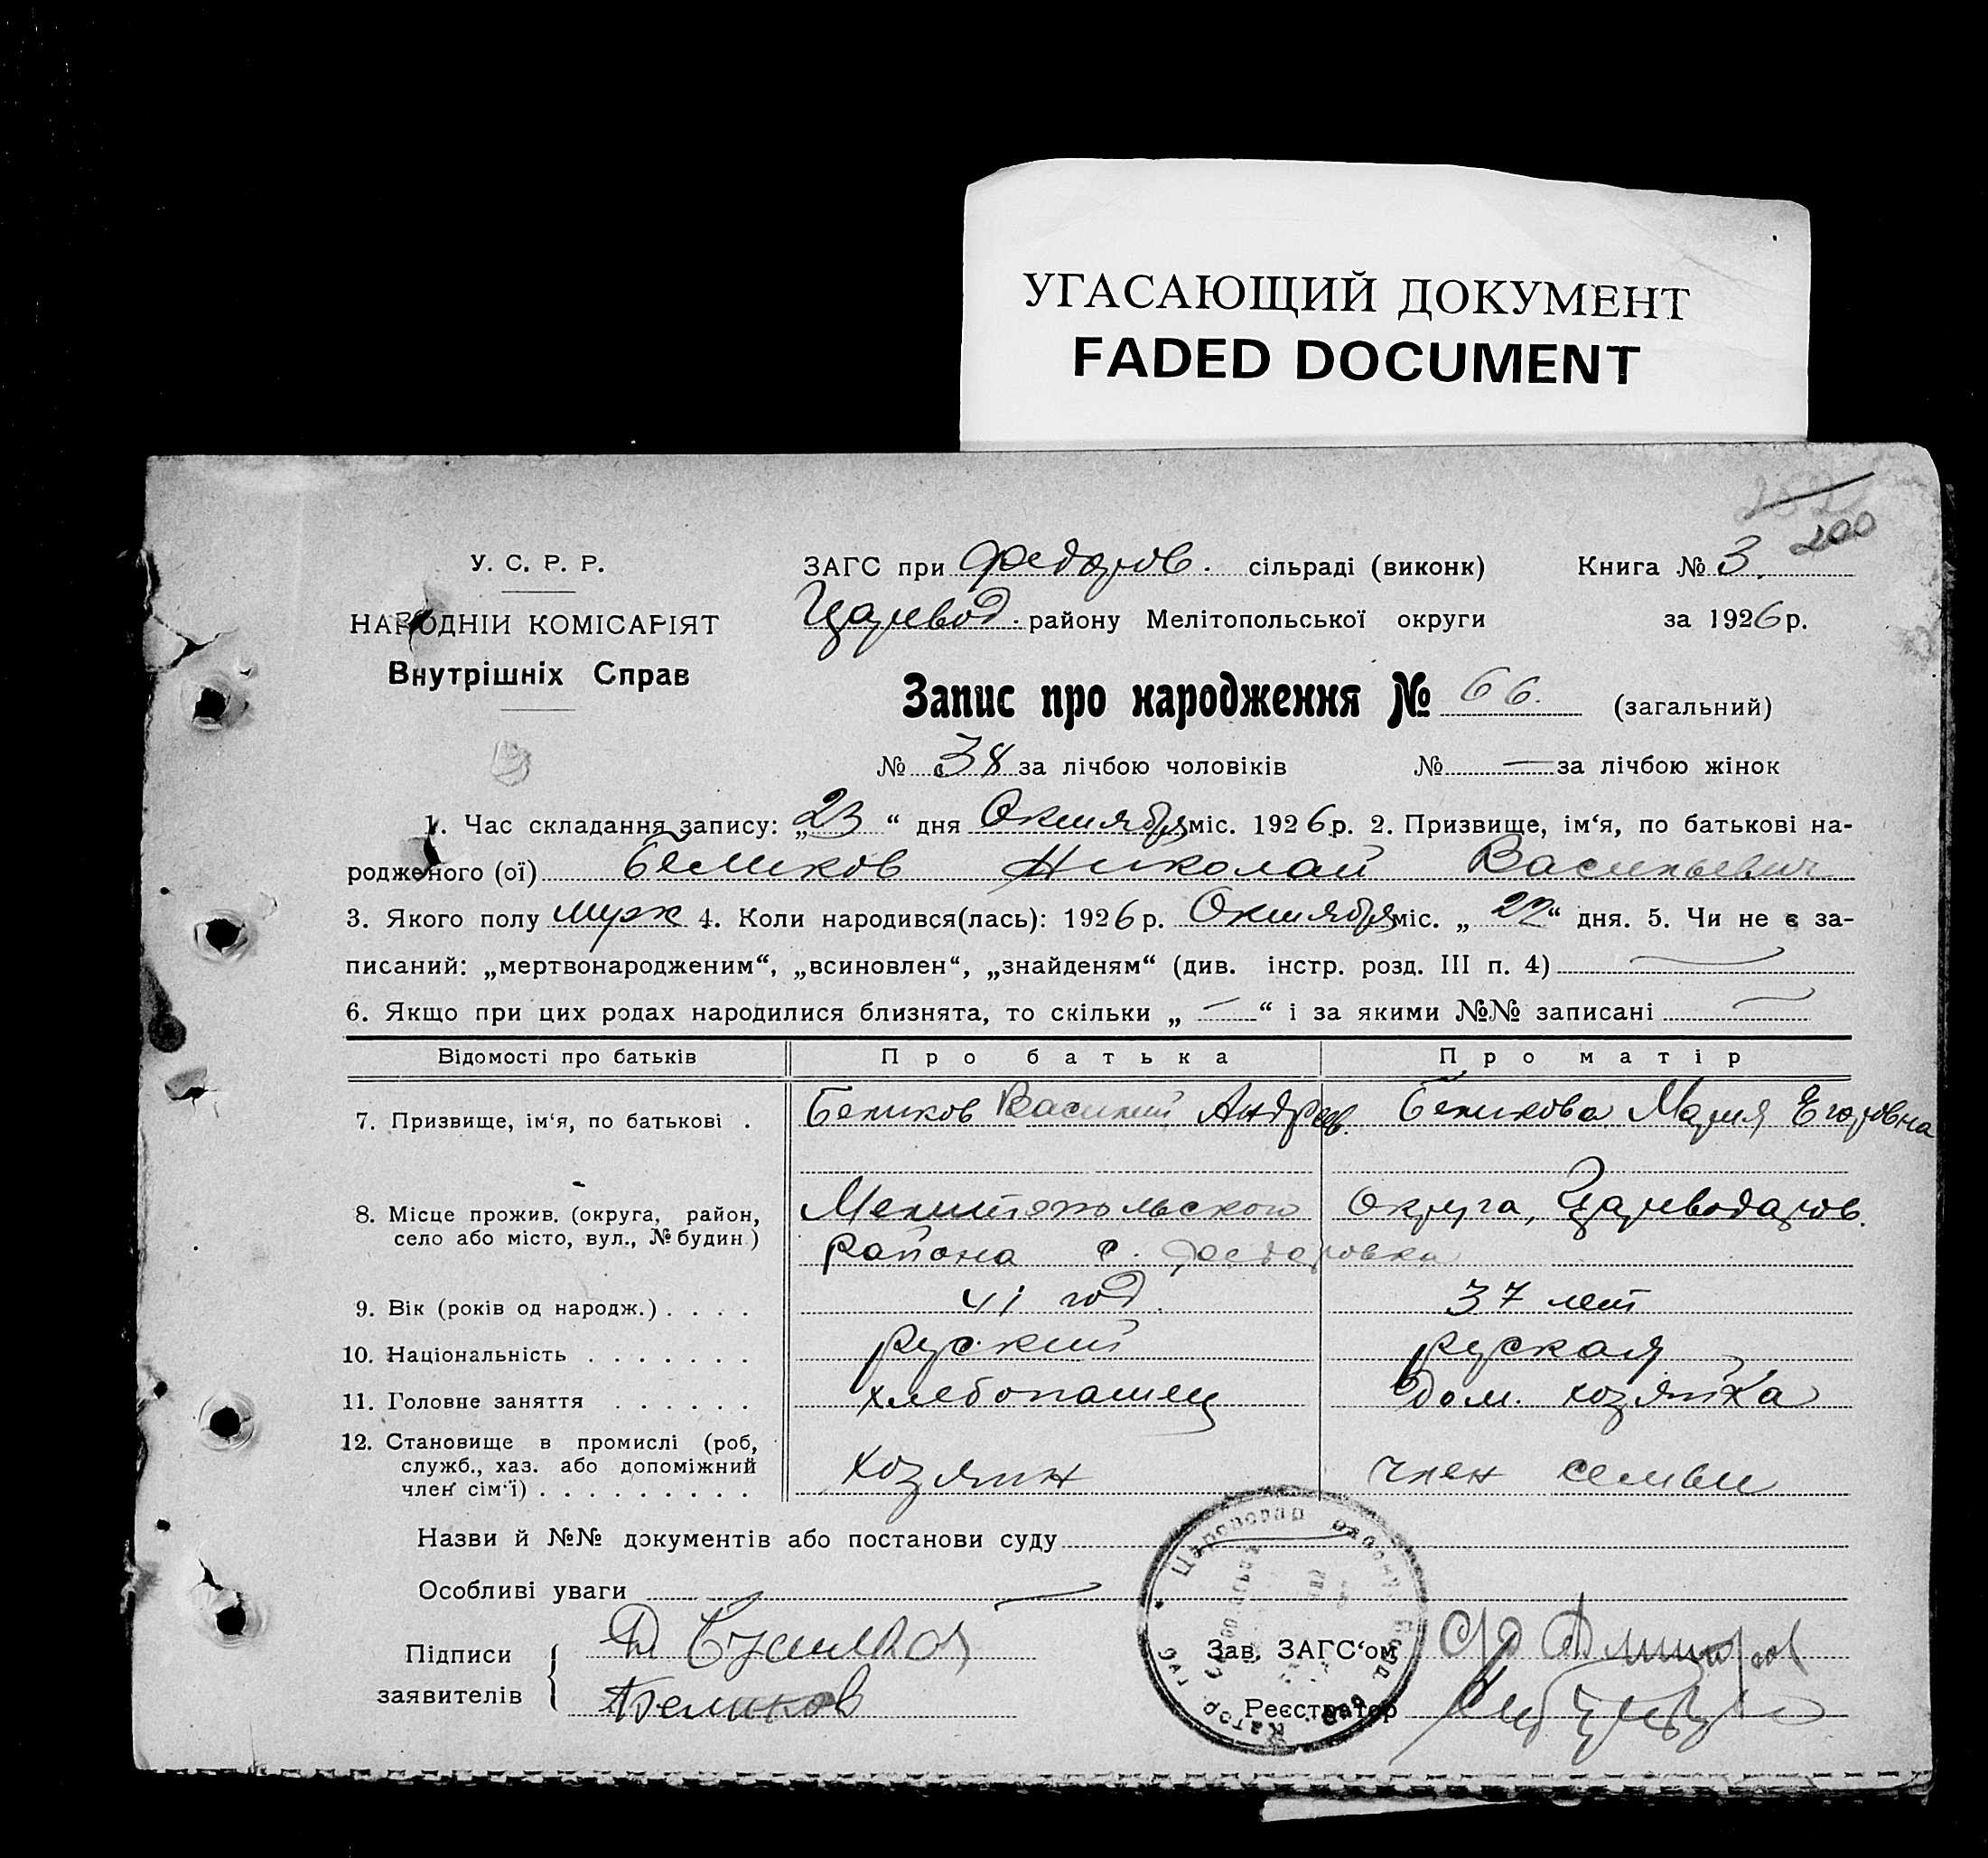 УГАСАЮЩИЙ ДОКУМЕНТ
FADED DOCUMENT
200
У. С. Р. Р.
ЗАГС при Федоров. сільраді (виконк) Книга № 3.
НАРОДНІИ КОМІСАРІЯТ
Царевод. району Мелітопольської округи за 1926 р.
Внутрішніх Справ
Запис про народження № 66. (загальний)
№ 38 за лічбою чоловіків № — за лічбою жінок
1. Час складання запису: „23“ дня Октября міс. 1926 р. 2. Призвище, ім‘я, по батькові на-
родженого (ої) Беликов Николай Васильевич
3. Якого полу муж 4. Коли народився(лась): 1926 р. Октября міс. „22“ дня. 5. Чи не є за-
писаний: „мертвонародженим“, „всиновлен“, „знайденям“ (див. інстр. розд. III п. 4)
6. Якщо при цих родах народилися близнята, то скільки „ — “ і за якими №№ записані —
Відомості про батьків Про батька Про матір
7. Призвище, ім‘я, по батькові . Беликов Василий Андреев. Беликова Мария Егоровна
8. Місце прожив. (округа, район, село або місто, вул., № будин.) Мелитопольского округа, Цареводаров.
района с. Федоровка
9. Вік (років од народж.) . . . . 41 год. 37 лет
10. Національність . . . . . . . руский руская
11. Головне заняття . . . . . . хлебопашец дом. хозяйка
12. Становище в промислі (роб, служб., хаз. або допоміжний член сім‘ї) . . . . . . . . . хозяин член семьи
Назви й №№ документів або постанови суду
Особливі уваги —
Підписи заявителів
Беликов
Зав. ЗАГС‘ом
Реєстратор